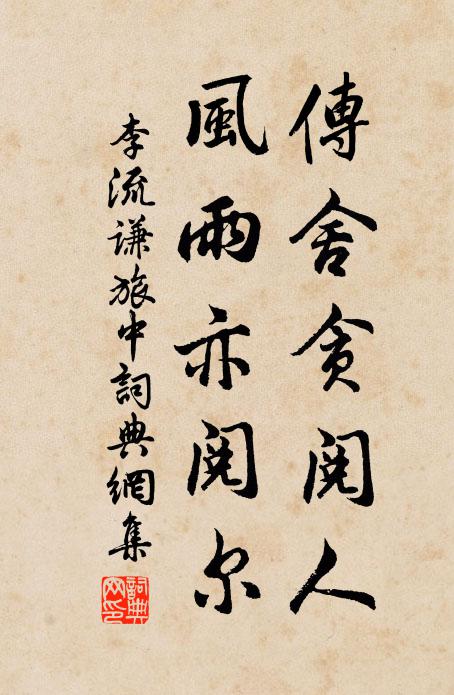 傳舍貪閱人
風雨亦閱尔
李流谦旅中詞典網集
詞典网印